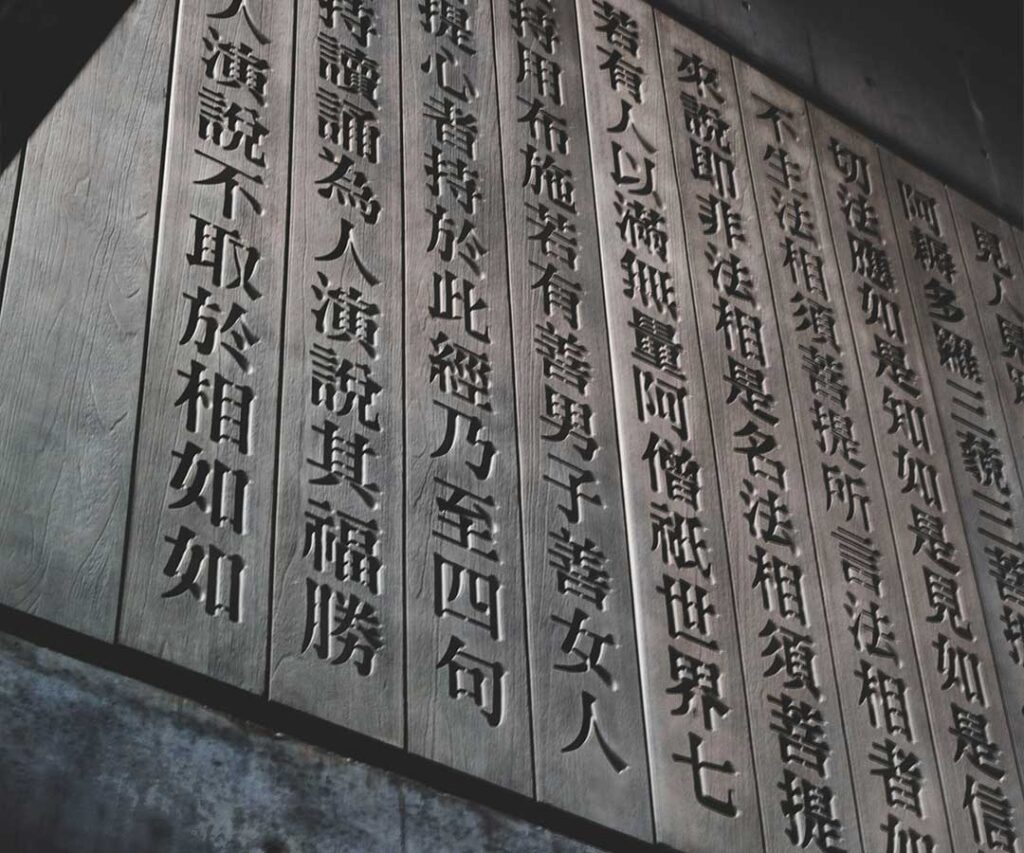 見人見
阿耨多羅三藐三菩提
切法應如是知如是見如是信
不生法相須菩提所言法相者如
來說即非法相是名法相須菩提
若有人以滿無量阿僧祇世界七
持用布施若有善男子善女人
提心者持於此經乃至四句
持讀誦為人演說其福勝
人演說不取於相如如